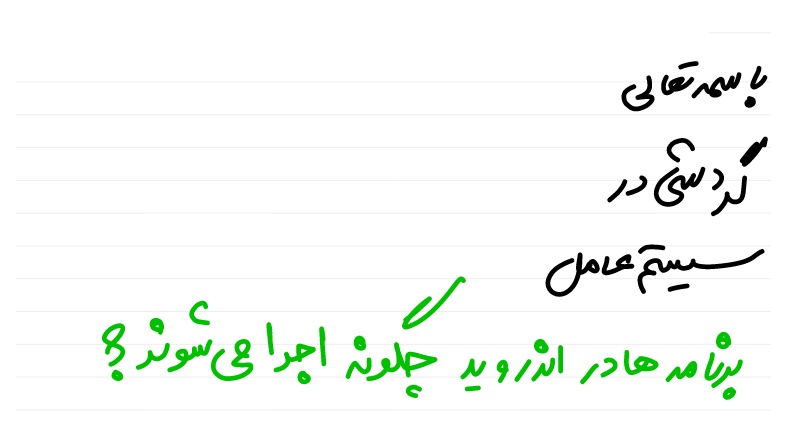 باسمه تعالی
گردشی در
سیستم عامل
برنامه ها در اندروید چگونه اجرا می شوند؟